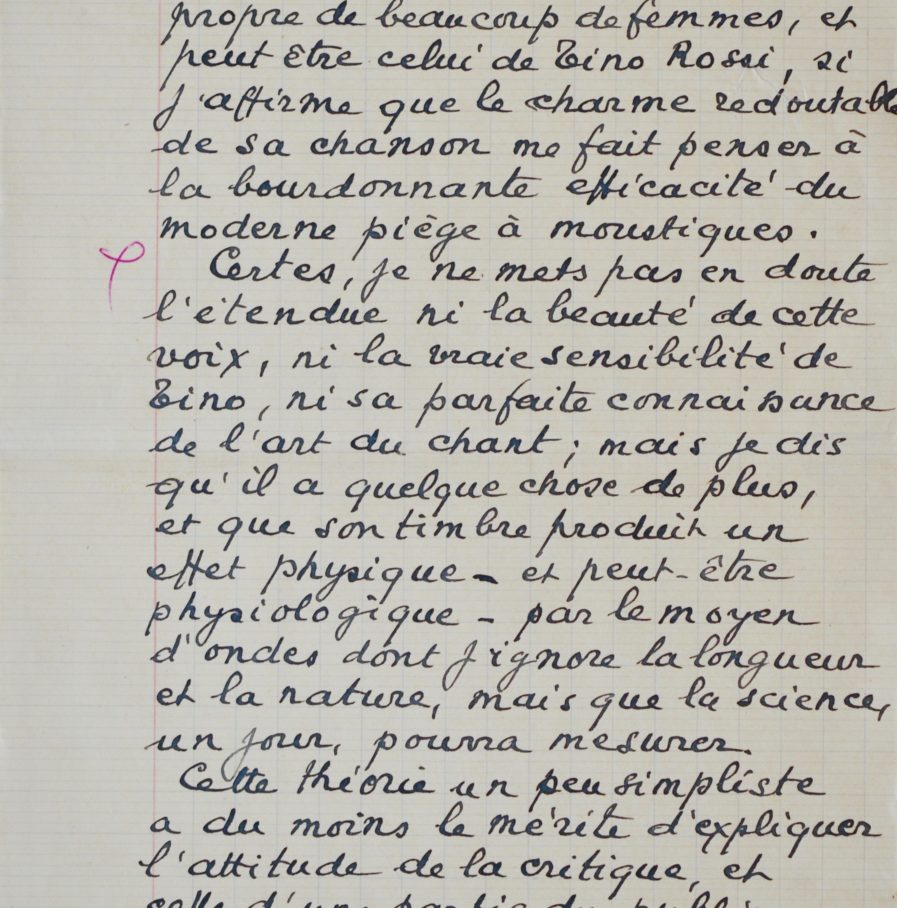 propre de beaucoup de femmes, et
peut être celui de Tino Rossi, si
j'affirme que le charme redoutable
de sa chanson me fait penser à
la bourdonnante efficacité du
moderne piège à moustiques.
Certes, je ne mets pas en doute
l'étendue ni la beauté de cette
voix, ni la vraie sensibilité de
Tino, ni sa parfaite connaissance
de l'art du chant ; mais je dis
qu'il a quelque chose de plus,
et que son timbre produit un
effet physique - et peut-être
physiologique - par le moyen
d'ondes dont j'ignore la longueur
et la nature, mais que la science,
un jour, pourra mesurer.
Cette théorie un peu simpliste
a du moins le mérite d'expliquer
l'attitude de la critique, et
celle d'une partie du